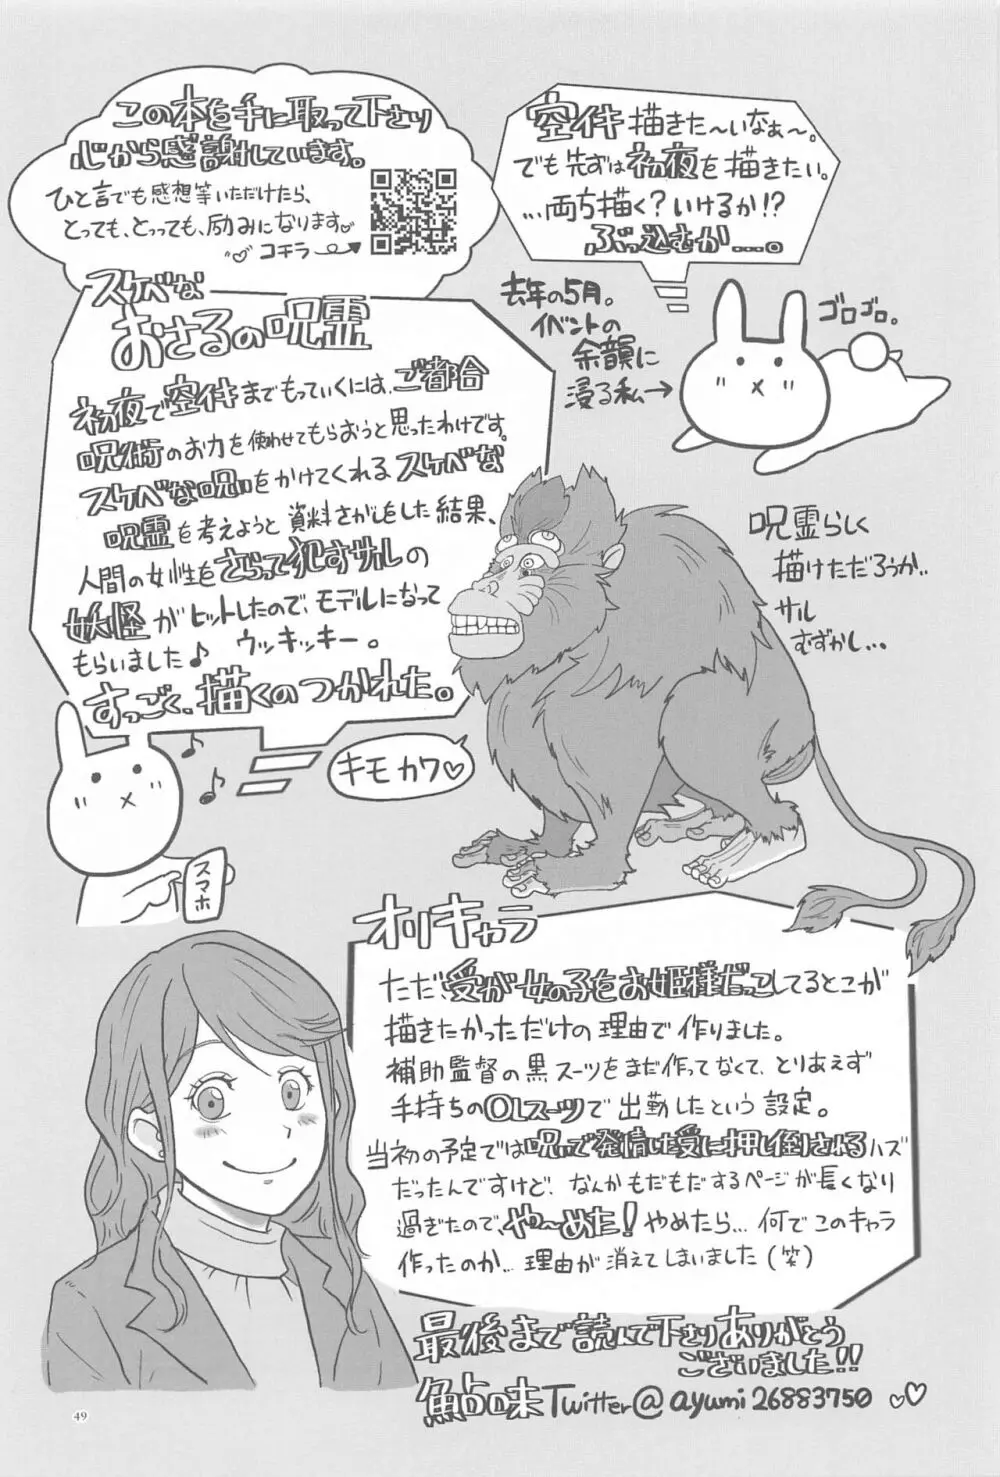 この本を手に取って下さり
心から感謝しています。
ひと言でも感想等いただけたら、
とっても、とっっても、励みになります♡
コチラ
空イキ描きた〜いなぁ〜。
でも先ずは初夜を描きたい。
…両方描く?いけるか!?
ぶっ込むか……。
去年の5月。
イベントの
余韻に
浸る私→
ゴロゴロ。
スケベな
おさるの呪霊
初夜で空イキまでもっていくには、ご都合
呪術のお力を使わせてもらおうと思ったわけです。
スケベな呪いをかけてくれるスケベな
呪霊を考えようと資料さがしをした結果、
人間の女性をさらって犯すサルの
妖怪がヒットしたので、モデルになって
もらいました♪ ウッキッキー。
すっごく、描くのつかれた。
呪霊らしく
描けただろうか..
サル
むずかし...
キモカワ♡
スマホ
オリキャラ
ただ、受が女の子をお姫様だっこしてるとこが
描きたかっただけの理由で作りました。
補助監督の黒スーツをまだ作ってなくて、とりあえず
手持ちのOLスーツで出勤したという設定。
当初の予定では呪いで発情した受に押し倒されるハズ
だったんですけど、なんかもだもだするページが長くなり
過ぎたので、や〜めた!やめたら…何でこのキャラ
作ったのか…理由が消えてしまいました(笑)
最後まで読んで下さりありがとう
ございました!!
鮎味 Twitter@ayumi26883750
49